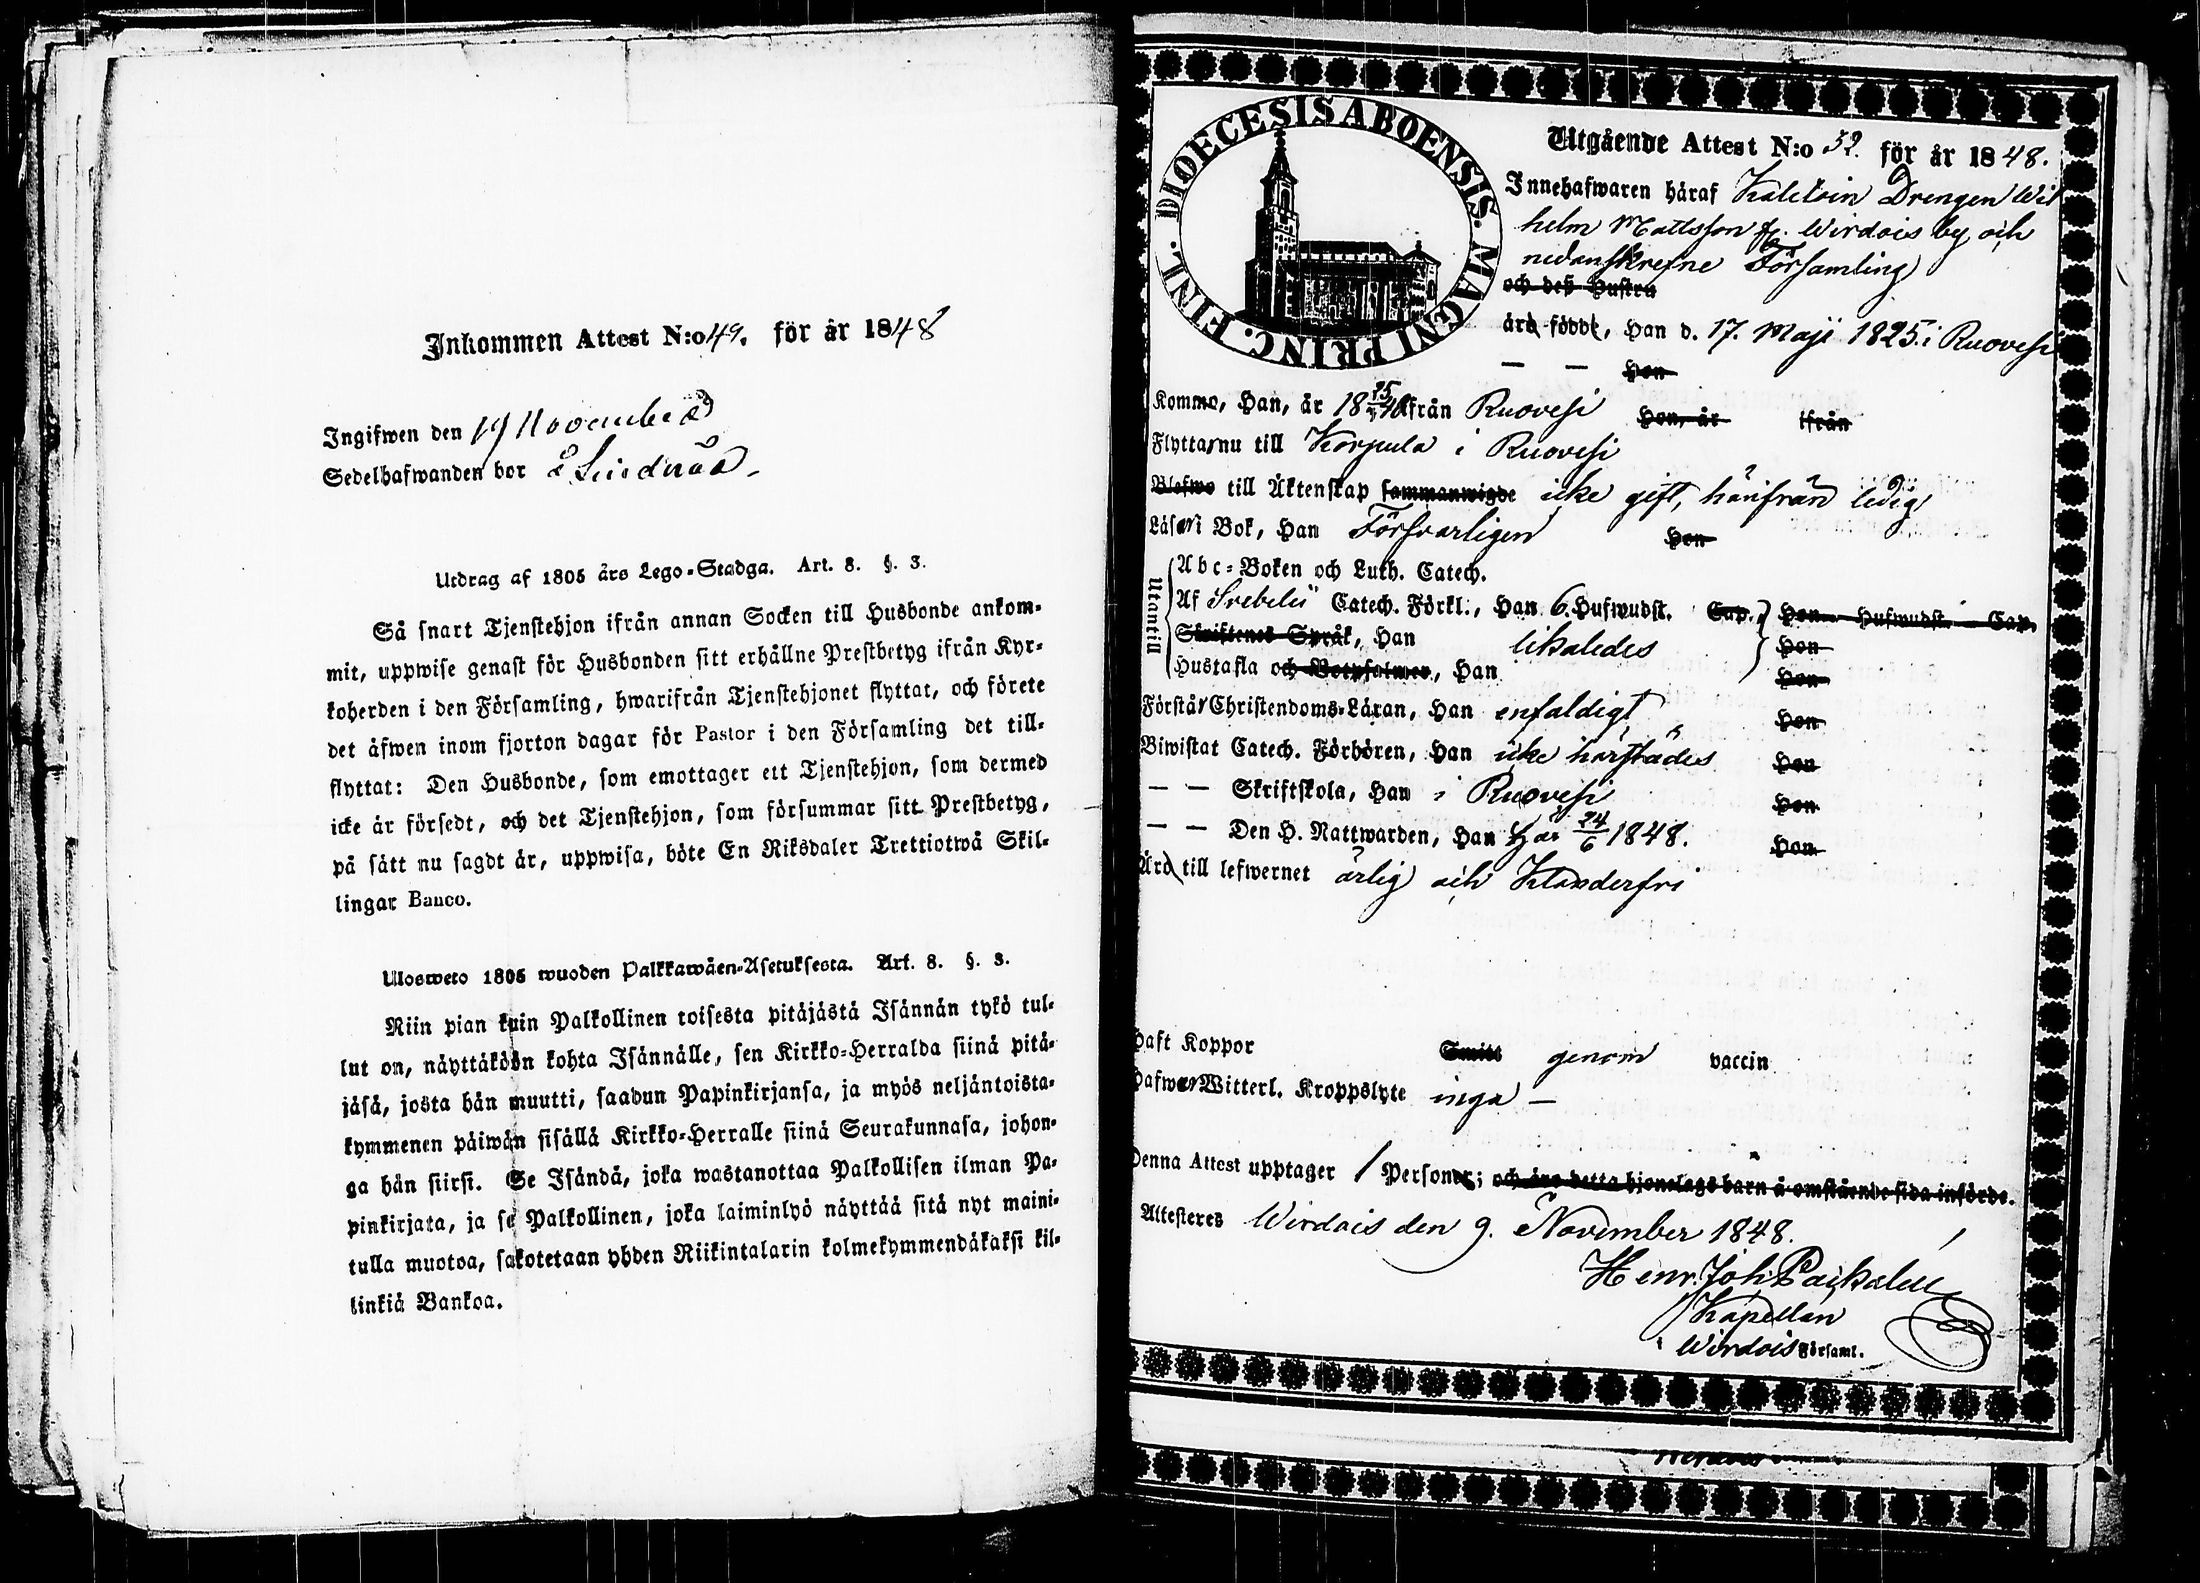 Inkommen Attest N:o 49. för år 1848
Ingifwen den 19 November
Sedelhafwanden bor
Utdrag af 1805 års Lego-Stadga. Art. 8. §. 3.
Så snart Tjenstehjon ifrån annan Socken till Husbonde ankom-
mit, uppwise genast för Husbonden sitt erhållne Prestbetyg ifrån Kyr-
koherden i den Församling, hwarifrån Tjenstehjonet flyttat, och förete
det äfwen inom fjorton dagar för Pastor i den Församling det till-
flyttat: Den Husbonde, som emottager ett Tjenstehjon, som dermed
icke är försedt, och det Tjenstehjon, som försummar sitt Prestbetyg,
på sätt nu sagdt är, uppwisa, böte En Riksdaler Trettiotwå Skil-
lingar Banco.
Ulosweto 1805 wuoden Palkkawäen-Asetuksesta. Art. 8. §. 3.
Niin pian kuin Palkollinen toisesta pitäjästä Isännän tykö tul-
lut on, näyttäköön kohta Isännälle, sen Kirkko-Herralda siinä pitä-
jäsä, josta hän muutti, saadun Papinkirjansa, ja myös neljäntoista-
kymmenen päiwän sisällä Kirkko-Herralle siinä Seurakunnasa, johon-
ga hän siirsi. Se Isändä, joka wastanottaa Palkollisen ilman Pa-
pinkirjata, ja se Palkollinen, joka laiminlyö näyttää sitä nyt maini-
tulla muotoa, sakotetaan yhden Riikintalarin kolmekymmendäkaksi kil-
linkiä Bankoa.
DIOECESIS ABOENSIS. MAGNI PRINC. FINL.
Utgående Attest N:o 32. för år 1848.
Innehafwaren häraf Drengen Wil
helm Mattsson fr. Wirdois by och
nedanskrefne Församling
och deß Hustru
äro födde, Han d. 17. Maji 1825. i Ruovesi
— — Hon
Komme, Han, år 18 ifrån Ruovesi Hon, år ifrån
Flytta nu till Korpula i Ruovesi
Blefwo till Äktenskap sammanwigde icke gift, härifrån ledig
Läser i Bok, Han Försvarligen Hon
Utantill
Abc-Boken och Luth. Catech.
Af Svebelii Catech. Förkl., Han 6. Hufwudst. Cap. Hon Hufwudst. Cap.
Skriftenes Språk, Han likaledes Hon
Hustafla och Botpsalmer, Han Hon
Förstår Christendoms-Läran, Han enfaldigt Hon
Biwistat Catech. Förhören, Han icke härstädes Hon
— — Skriftskola, Han i Ruovesi Hon
— — Den H. Nattwarden, Han här 24/6 1848. Hon
Äro till lefwernet ärlig och Klanderfri
Haft Koppor Smitt genom vaccin
Hafwer Witterl. Kroppslyte inga —
Denna Attest upptager 1 Personer; och äro detta hjonelags barn å omstående sida införde.
Attesteres Wirdois den 9. November 1848.
Henr. Joh. Pajkalen
Kapellan
i Wirdois Församl.